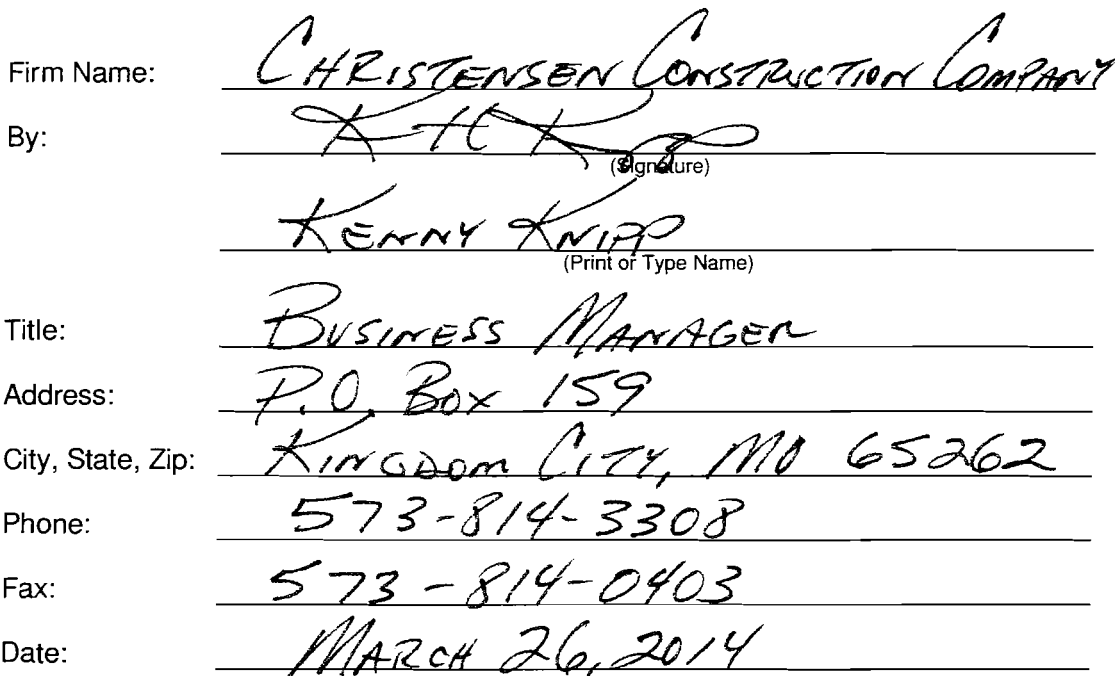 Firm Name: CHRISTENSEN CONSTRUCTION COMPANY
By:
(Signature)
KENNY KNIPP
(Print or Type Name)
Title: BUSINESS MANAGER
Address: P.O. Box 159
City, State, Zip: KINGDOM CITY, MO 65262
Phone: 573-814-3308
Fax: 573-814-0403
Date: MARCH 26, 2014